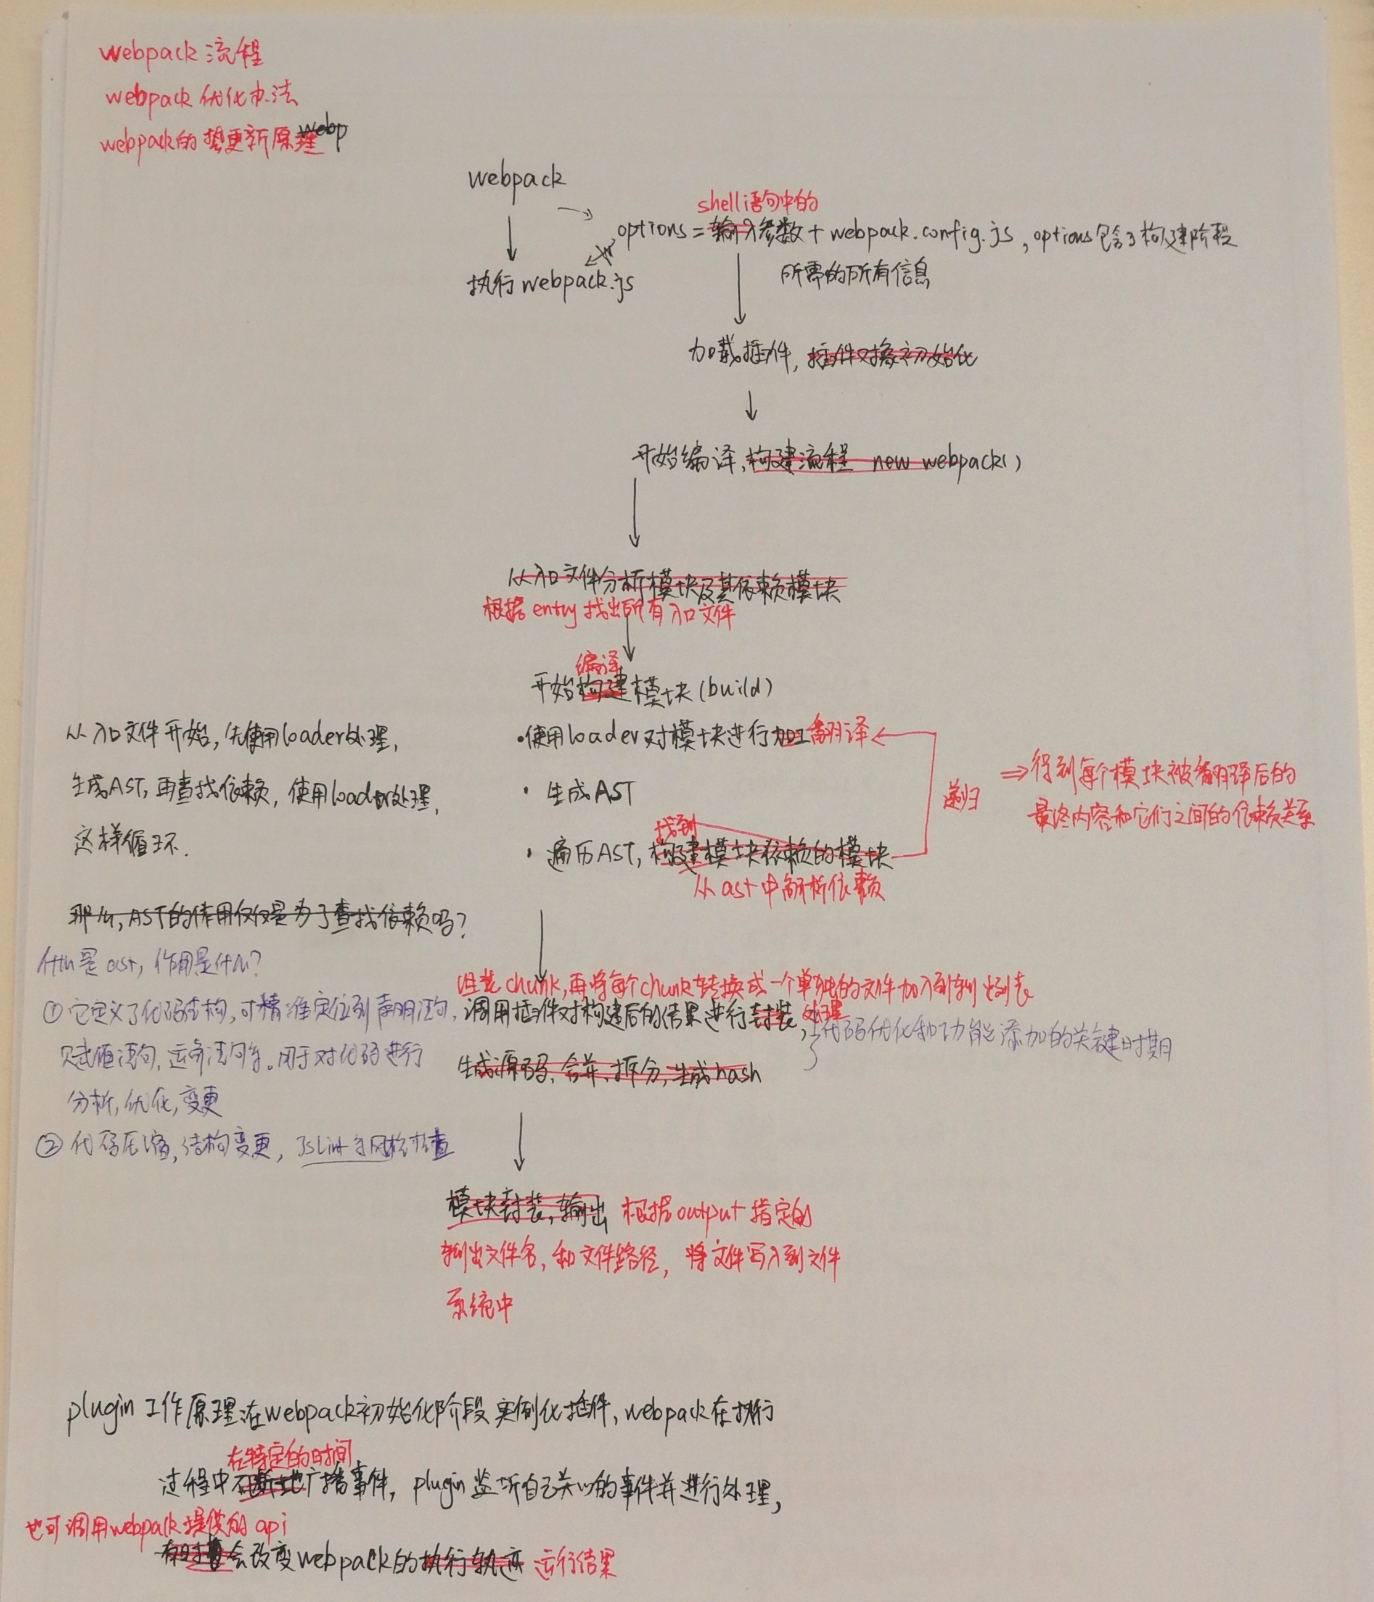 webpack 流程
webpack 优化办法
webpack的热更新原理webp
webpack
shell语句中的
options = 输入参数 + webpack.config.js, options包含了构建阶段
所需的所有信息
执行webpack.js
加载插件, 插件对象初始化
开始编译, 构建流程 new webpack()
从入口文件分析模块及其依赖模块
根据entry找出所有入口文件
编译
开始构建模块(build)
从入口文件开始, 先使用loader处理,
生成AST, 再查找依赖, 使用loader处理,
这样循环.
·使用loader对模块进行加工翻译
· 生成AST
找到
· 遍历AST, 构建模块依赖的模块
从ast中解析依赖
递归
⇒得到每个模块被翻译后的
最终内容和它们之间的依赖关系
那么, AST的作用仅仅是为了查找依赖吗?
什么是ast, 作用是什么?
① 它定义了代码结构, 可精准定位到声明语句,
赋值语句, 运算语句等。用于对代码进行
分析, 优化, 变更
② 代码压缩, 结构变更, JSLint等风格检查
组装chunk, 再将每个chunk转换成一个单独的文件加入到输出列表
调用插件对构建后的结果进行封装, 处理
代码优化和功能添加的关键时期
生成源码, 合并, 拆分, 生成hash
模块封装, 输出 根据output指定的
输出文件名, 和文件路径, 将文件写入到文件
系统中
plugin工作原理:在webpack初始化阶段实例化插件, webpack在执行
在特定的时间
过程中不断地广播事件, plugin监听自己关心的事件并进行处理,
也可调用webpack提供的api
会改变webpack的执行轨迹 运行结果